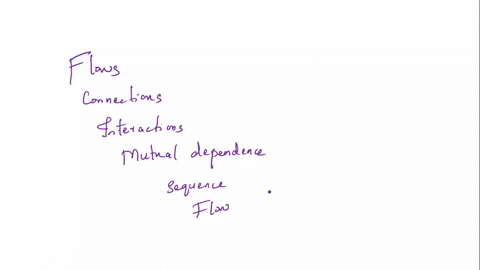 Flows
Connections
Interactions
Mutual dependence
sequence
Flow